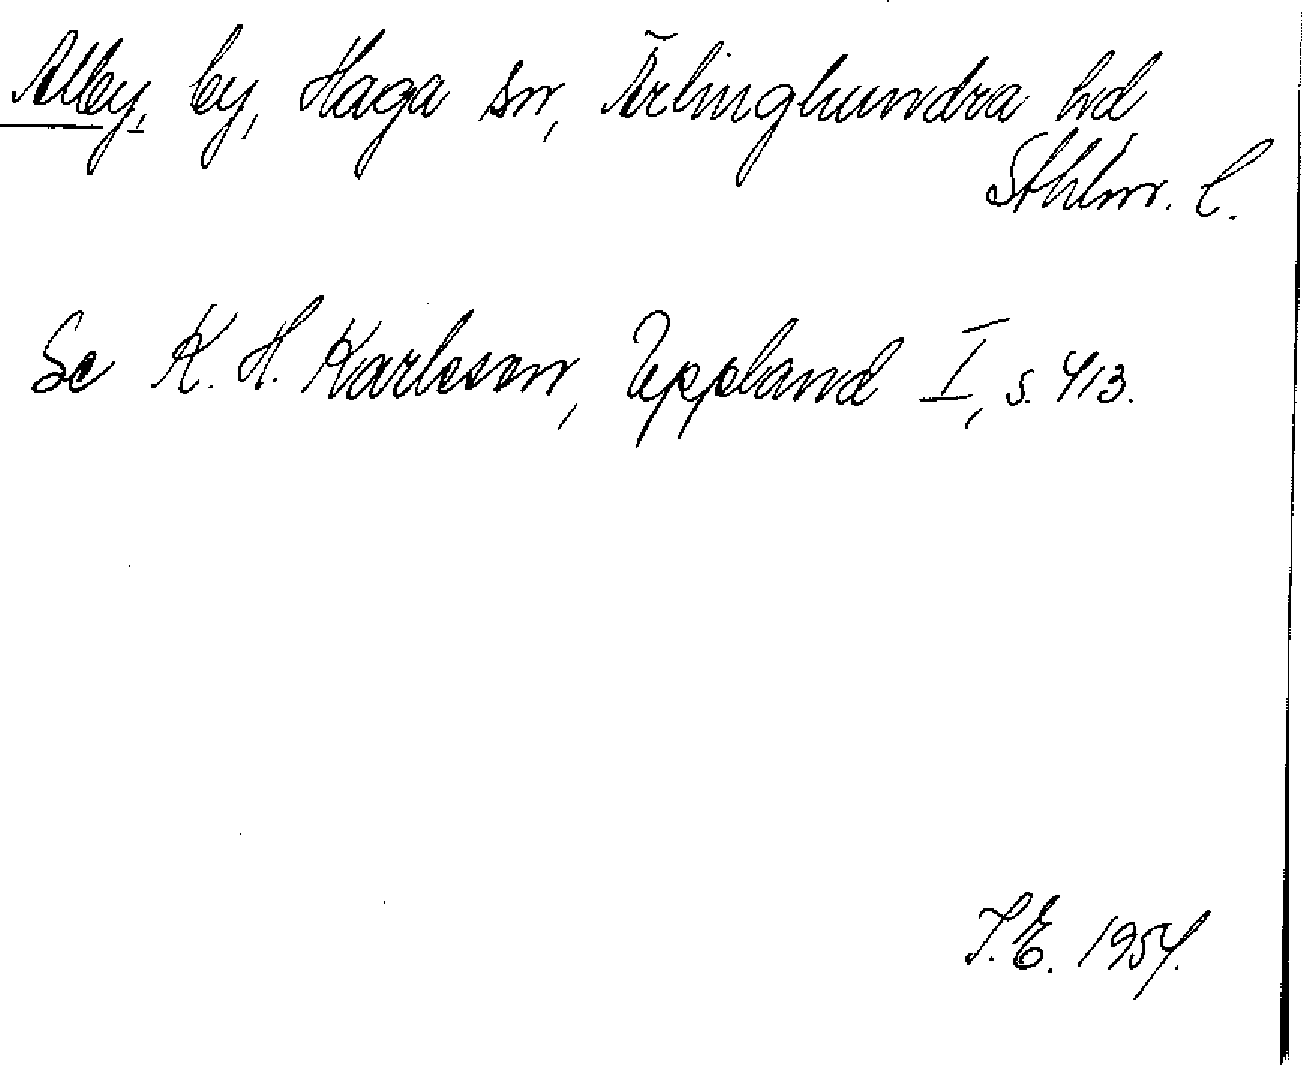 Alby, by, Haga sn, Ärlinghundra hd,
Sthlm. l.
Se K. H. Karlsson, Uppland I, s. 413.
I.E. 1954.